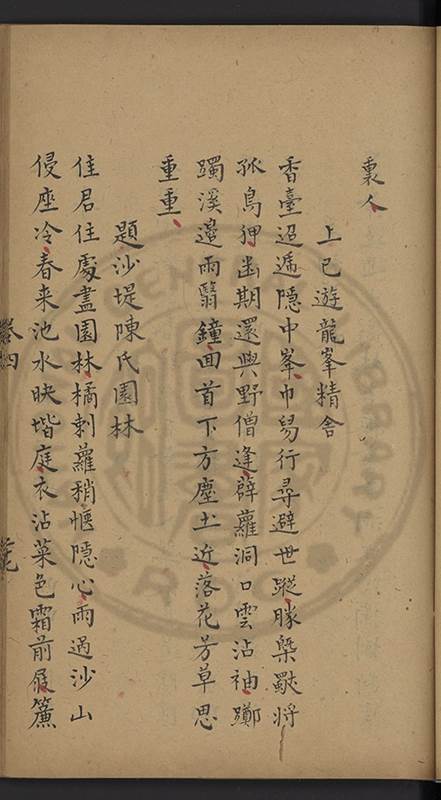 裏人
上巳遊龍峯精舍
香臺迢遞隱中峯巾舄行尋避世蹤勝槩歟將
孤鳥狎幽期還與野僧逢薜蘿洞口雲沾袖躑
躅溪邊雨翳鐘回首下方塵土近落花芳草思
重重
題沙堤陳氏園林
佳君住處盡園林橘刺蘿稍愜隱心雨過沙山
侵座冷春来池水映堦庭衣沾菜色霜前屐簾
卷四